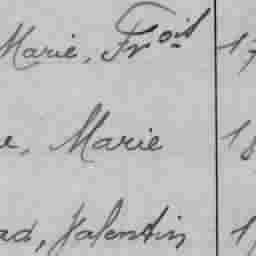 Marie, Frois 17
e, Marie 18
ad, Valentin 1